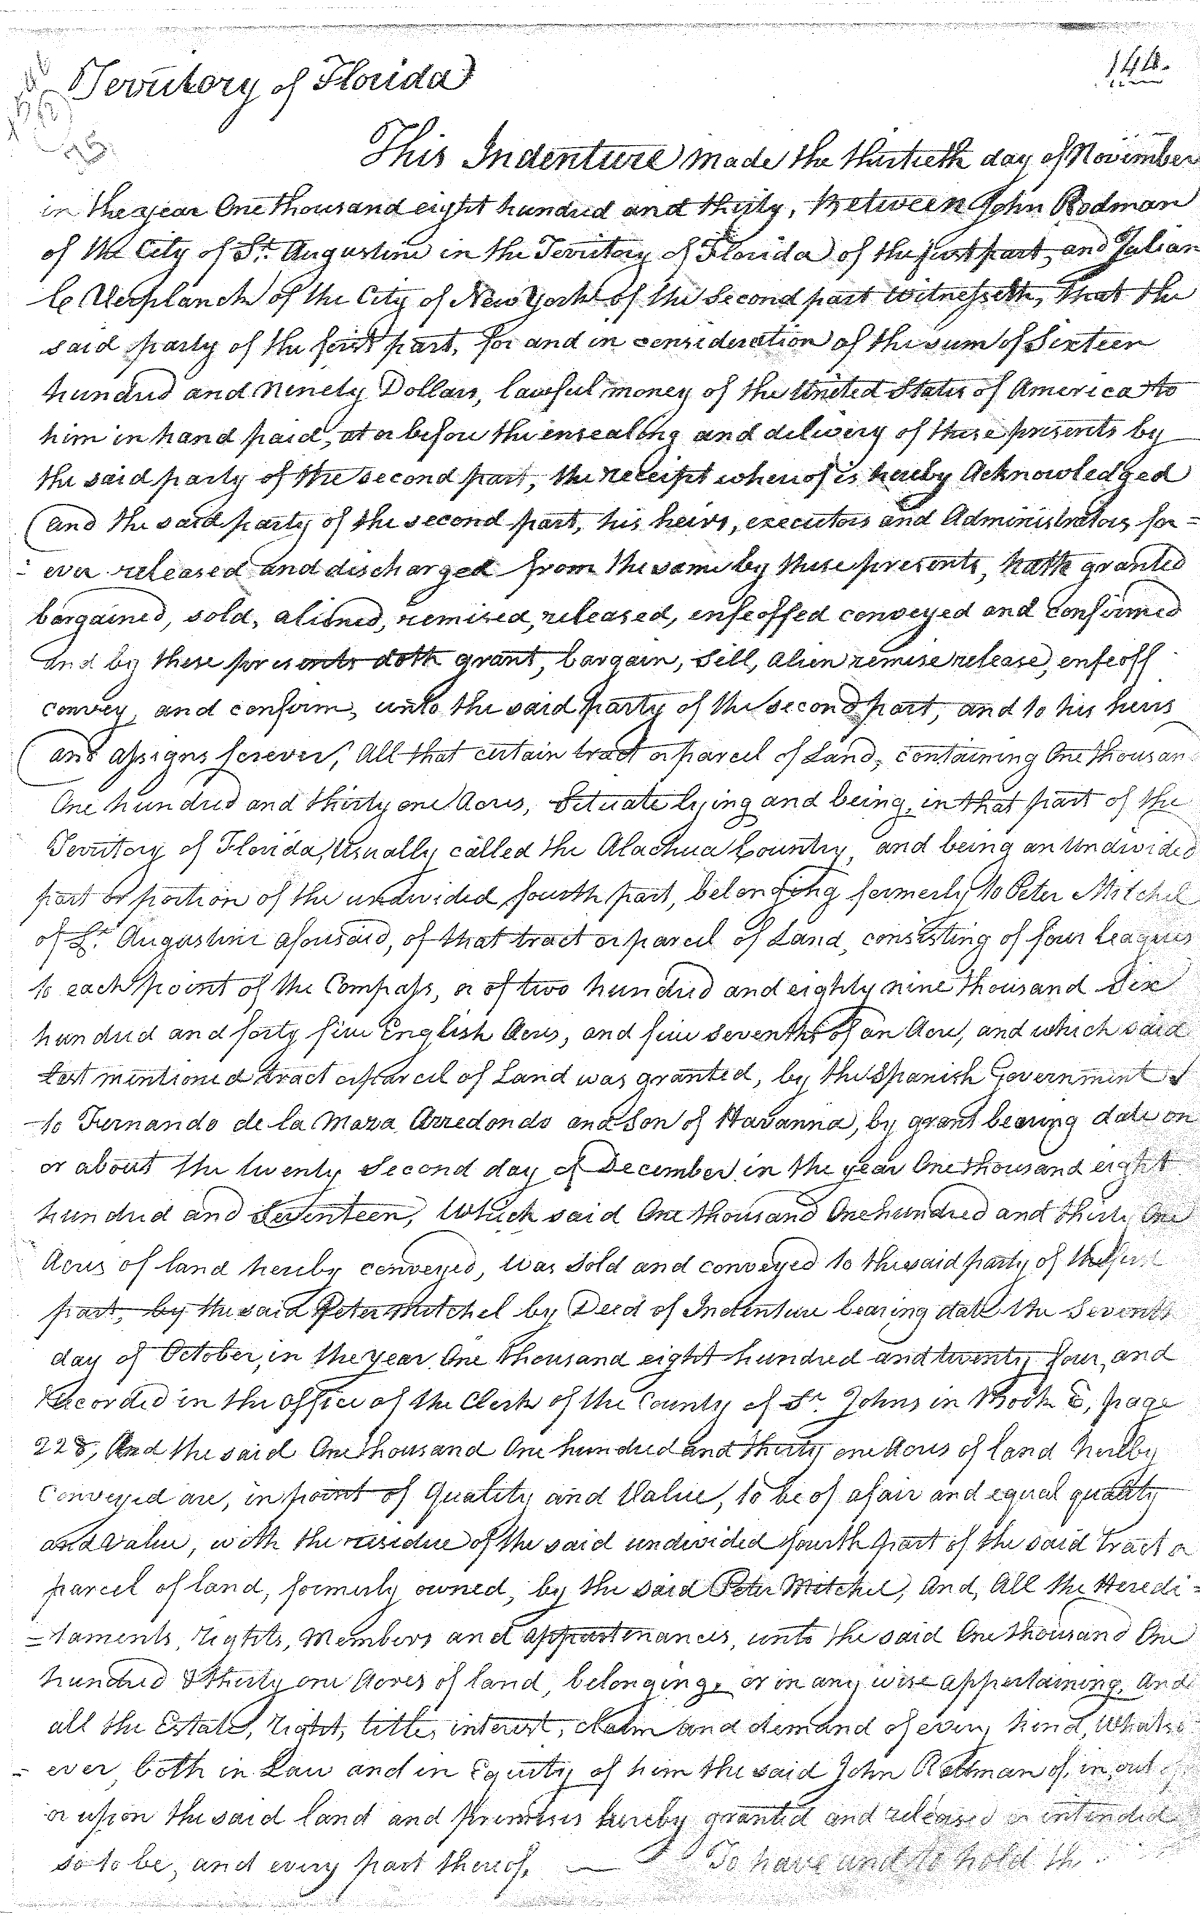 144.
Territory of Florida
This Indenture made the thirtieth day of November
in the year One thousand eight hundred and thirty, Between John Rodman
of the City of St. Augustine in the Territory of Florida of the first part, and Julian
C Verplanck of the City of New York of the second part Witnesseth, that the
said party of the first part, for and in consideration of the sum of Sixteen
hundred and Ninety Dollars, lawful money of the United States of America to
him in hand paid, at or before the ensealing and delivery of these presents by
the said party of the second part, the receipt whereof is hereby Acknowledged
and the said party of the second part, his heirs, executors and Administrators for=
=ever released and discharged from the same by these presents, hath granted
bargained, sold, aliened, remised, released, enfeoffed conveyed and confirmed
and by these presents doth grant, bargain, Sell, alien remise release, enfeoff
convey, and confirm, unto the said party of the second part, and to his heirs
and assigns forever, All that certain tract or parcel of Land, containing One thousand
One hundred and thirty one Acres, Situate lying and being, in that part of the
Territory of Florida, Usually called the Alachua Country, and being an Undivided
part or portion of the undivided fourth part, belonging formerly to Peter Mitchel
of St. Augustine aforesaid, of that tract or parcel of Land, consisting of four leagues
to each point of the Compass, or of two hundred and eighty nine thousand Six
hundred and forty five English Acres, and five sevenths of an Acre, and which said
last mentioned tract or parcel of Land was granted, by the Spanish Government
to Fernando de la Maza Arredondo and Son of Havanna, by grant bearing date on
or about the twenty Second day of December in the year One thousand eight
hundred and Seventeen, Which said One thousand One hundred and thirty One
Acres of land hereby conveyed, was Sold and conveyed to the said party of the first
part, by the said Peter Mitchel by Deed of Indenture bearing date the Seventh
day of October, in the year One thousand eight hundred and twenty four, and
recorded in the office of the Clerk of the County of St. Johns in Book E, page
228, And the said One thousand One hundred and thirty one Acres of land hereby
conveyed are, in point of Quality and Value, to be of a fair and equal quality
and value, with the residue of the said undivided fourth part of the said tract or
parcel of land, formerly owned, by the said Peter Mitchel, And, All the Heredi=
=taments, rights, Members and appurtenances, unto the said One thousand One
hundred & thirty one Acres of land, belonging, or in any wise appertaining, And
all the Estate, right, title, interest, claim and demand of every kind, Whatso
=ever, both in Law and in Equity of him the said John Rodman of, in, out of
or upon the said land and Premises hereby granted and released or intended
so to be, and every part thereof. — To have and to hold the